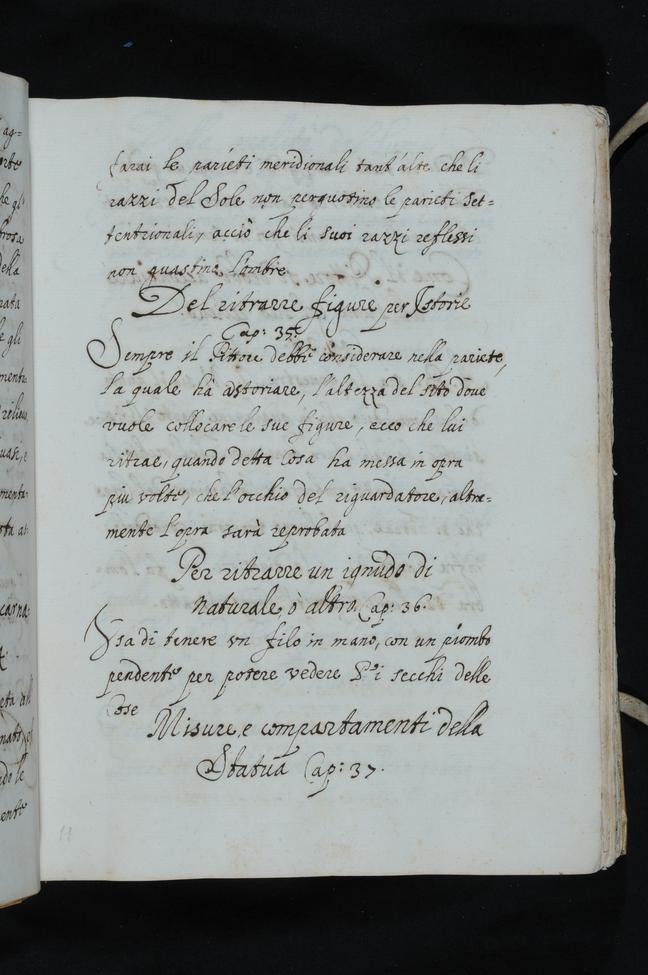 farai le parieti meridionali tant'alte che li
razzi del Sole non perquotino le parieti set=
tentrionali, acciò che li suoi razzi reflessi
non guastino l'ombre
Del ritrarre figure per Istorie
Cap: 35.
Sempre il Pittore debbe considerare nella pariete,
la quale ha astoriare, l'altezza del sito doue
vuole collocare le sue figure, ecco che lui
ritrae, quando detta Cosa ha messa in opra
piu volte, che l'occhio del riguardatore, altra=
mente l'opra sara reprobata
Per ritrarre un ignudo di
naturale, ò altro Cap: 36.
Vsa di tenere vn filo in mano, con un piombo
pendente per potere vedere P. i secchi delle
Cose
Misure, e compartamenti della
Statua Cap: 37.
ag=
della
mentr
carna
11